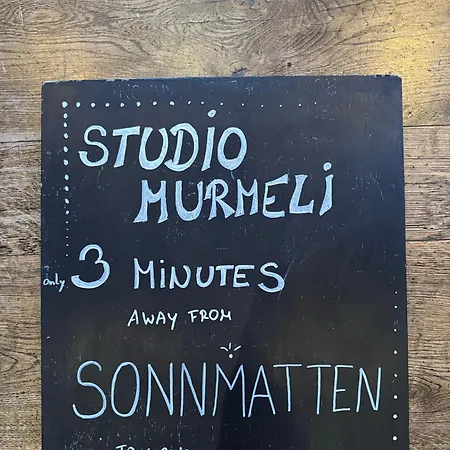 STUDIO
MURMELi
only 3 MiNUTES
AWAY FROM
SONNMATTEN